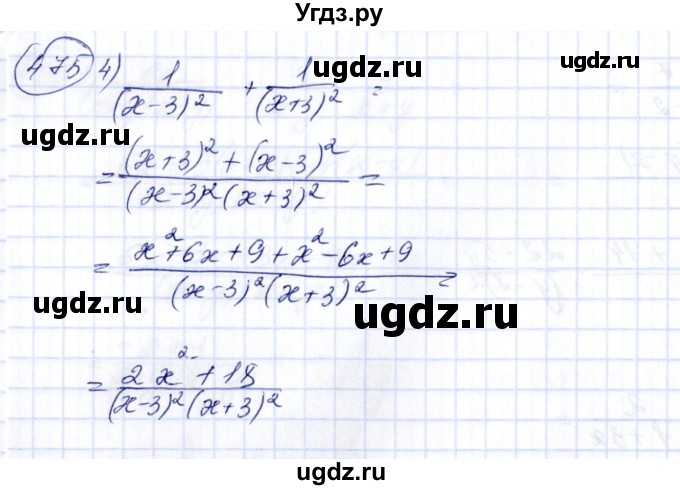 Угдз.ру
475 4) 1/(x-3)² + 1/(x+3)² =
= ((x+3)² + (x-3)²)/((x-3)²(x+3)²) =
= (x²+6x+9+x²-6x+9)/((x-3)²(x+3)²) =
= (2x²+18)/((x-3)²(x+3)²)
ugdz.ru
ugdz.ru
ugdz.ru
ugdz.ru
ugdz.ru
ugdz.ru
ugdz.ru
ugdz.ru